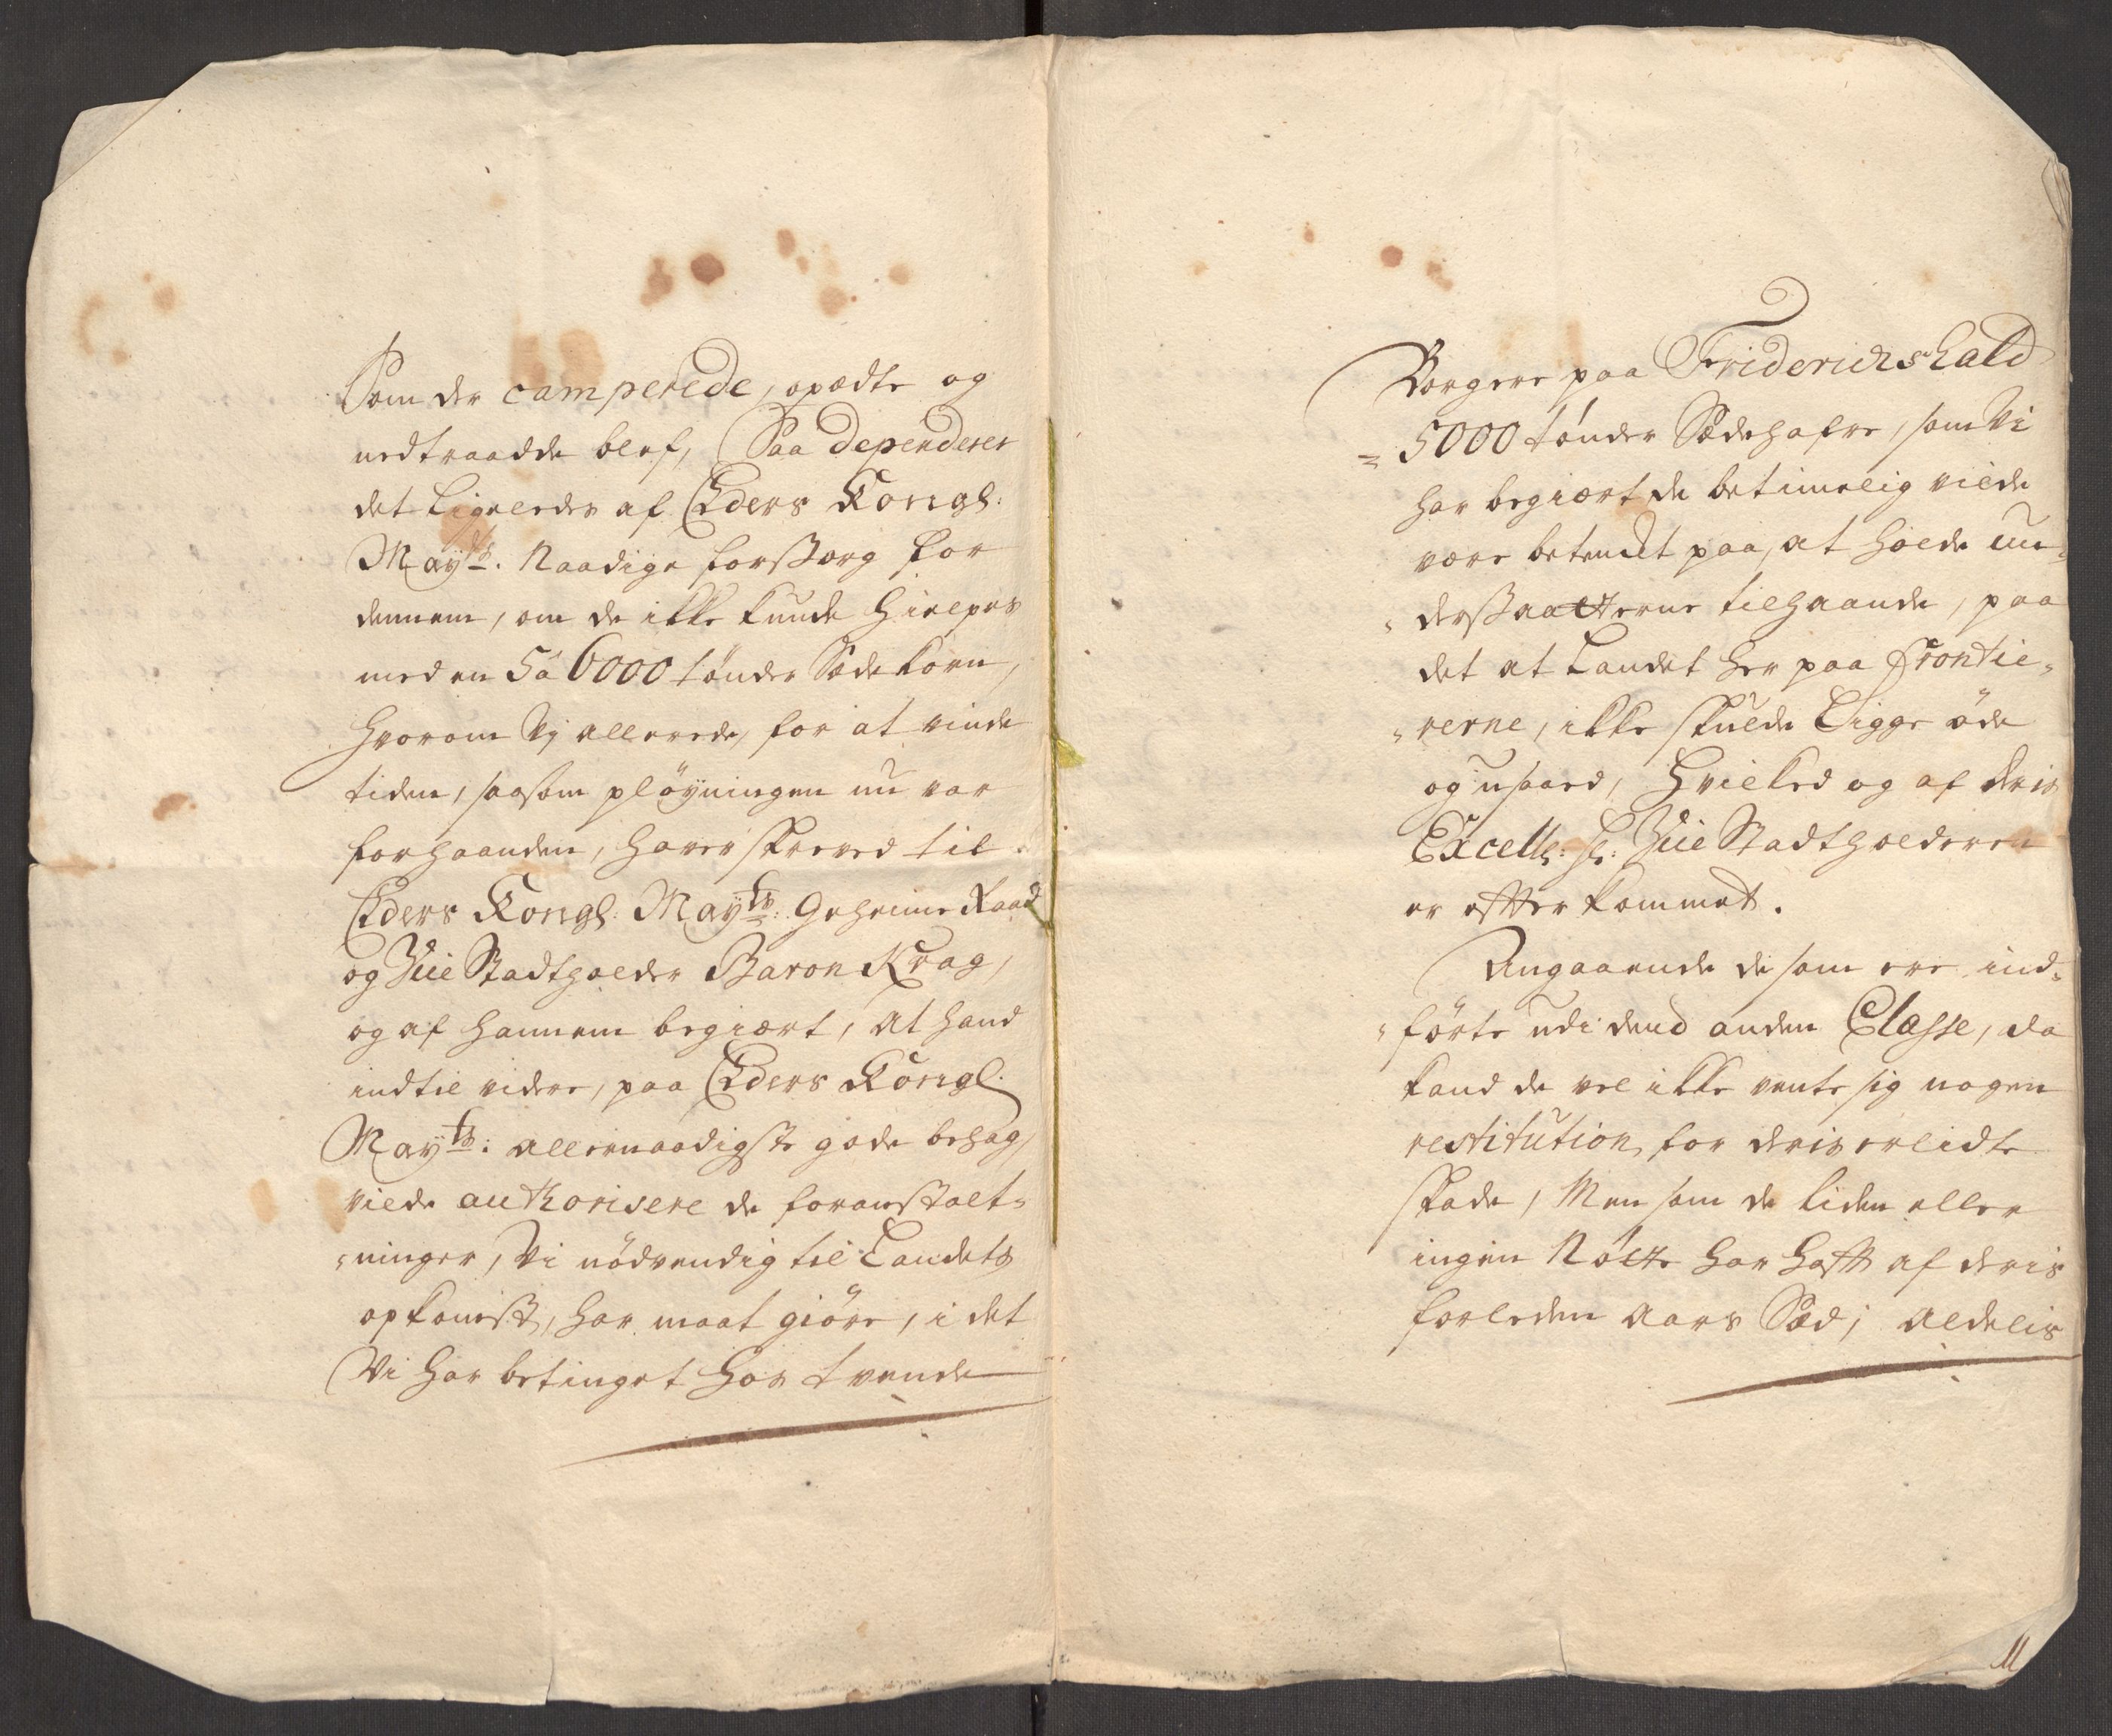 Som der camperede, opædte og
nedtraadde blef, Saa dependerer
det Ligeledes af Eders Kongl:
Mayts. Naadige forsorg for
dennem, om de ikke kunde hielpes
med en 5 à 6000 tönder Sædekorn,
hvorom Vj allerede, for at vinde
tiden, saasom pløyningen nu var
forhaanden, haver skreved til
Eders Kongl: Mayts: Geheime Raad
og Vice Stadtholder Baron Krag,
og af hannem begiært, at hand
indtil videre, paa Eders Kongl.
Mayts: allernaadigste gode behag,
vilde authorisere de foranstalt-
ninger, Vi nödvendig til Landets
opkomst, har maat giöre, i det
Vi har betinget hos tvende
Borgere paa Friderichshald
5000 tönder Sædehafre, som Vi
har begiært de betimelig vilde
være betænckt paa, at holde un-
dersaatterne tilhaande, paa
det at Landet her paa Frontie-
rerne, ikke skulde Ligge øde
og usaaed, hvilked og af deris
Excell: Hr: Vice Stadtholderen
er efter kommet.
Angaaende de som ere ind-
førte udi dend anden Classe, da
kand de vel ikke vente sig nogen
restitution for deris erlidte
skade, Men som de liden eller
ingen Nötte har hafft af deris
forleden Aars Sæd, aldelis
11